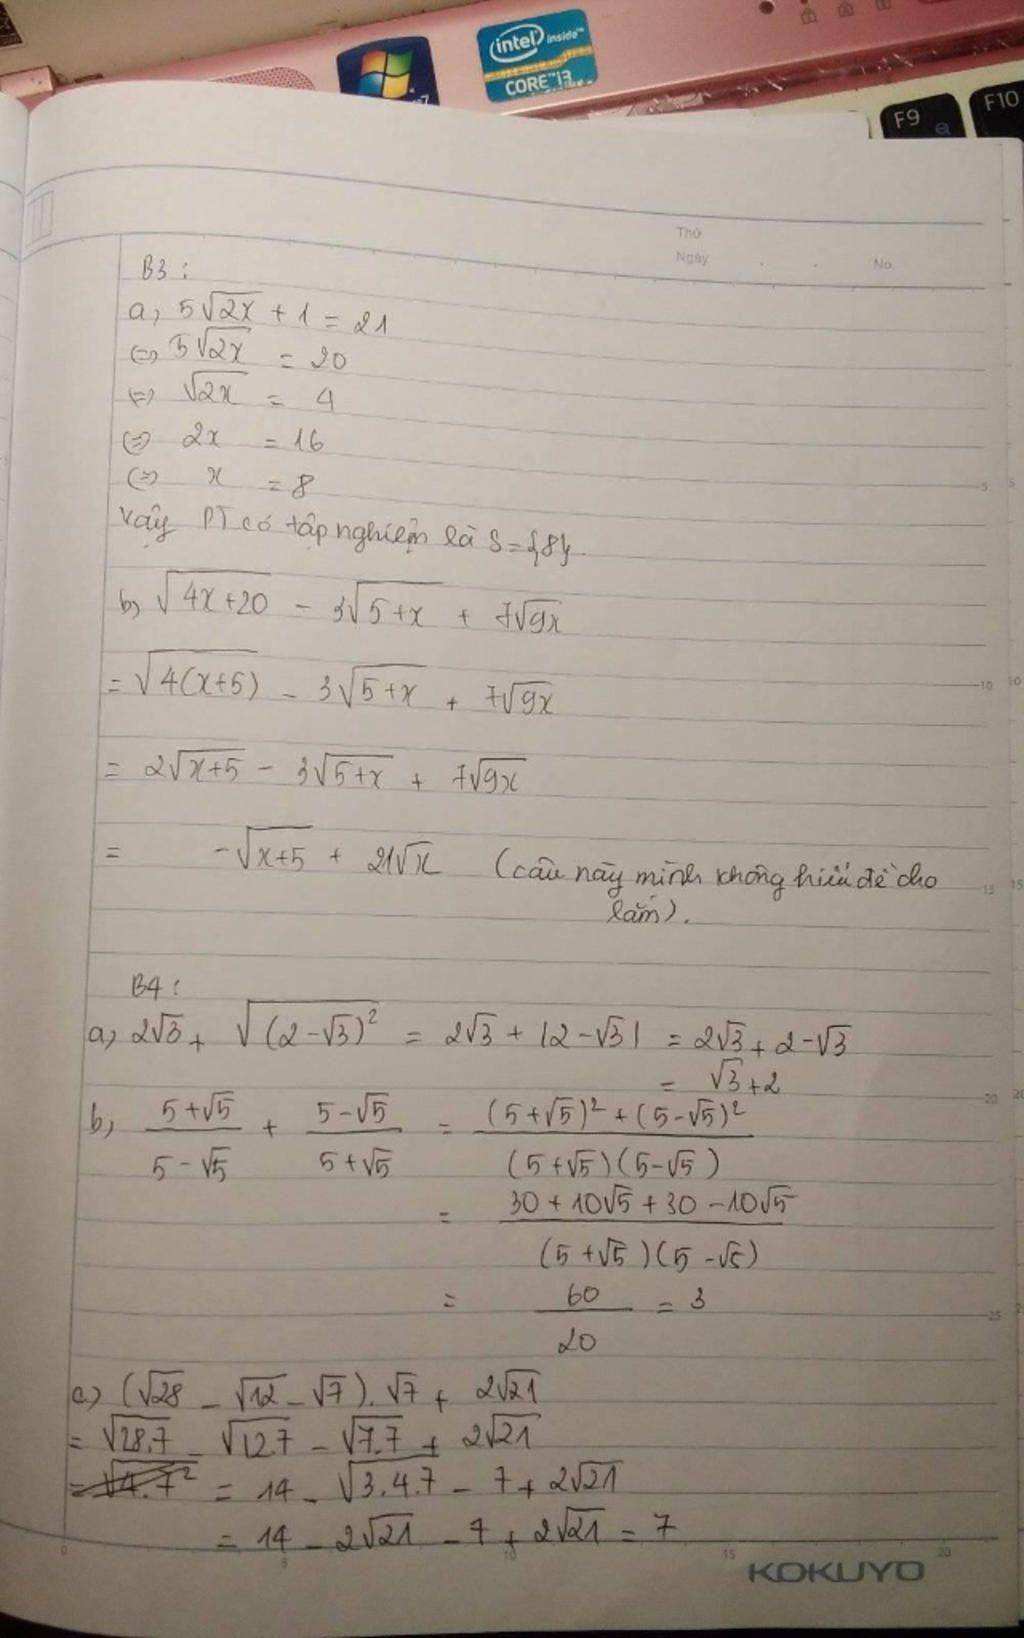 intel inside™
CORE™ i3
F9
F10
Thứ
Ngày
No.
B3:
a, 5√2x + 1 = 21
(=) 5√2x = 20
(=) √2x = 4
(=) 2x = 16
(=) x = 8
Vậy PT có tập nghiệm là S={8}.
b, √4x+20 - 3√5+x + 7√9x
= √4(x+5) - 3√5+x + 7√9x
= 2√x+5 - 3√5+x + 7√9x
= -√x+5 + 21√x (câu này mình không hiểu đề cho
lắm).
B4:
a, 2√3 + √(2-√3)² = 2√3 + |2-√3| = 2√3 + 2-√3
= √3+2
b, (5+√5)/(5-√5) + (5-√5)/(5+√5) = ((5+√5)²+(5-√5)²)/((5+√5)(5-√5))
= (30+10√5+30-10√5)/((5+√5)(5-√5))
= 60/20 = 3
c) (√28 - √12 - √7).√7 + 2√21
= √28.7 - √12.7 - √7.7 + 2√21
= √4.7² = 14 - √3.4.7 - 7 + 2√21
= 14 - 2√21 - 7 + 2√21 = 7
KOKUYO